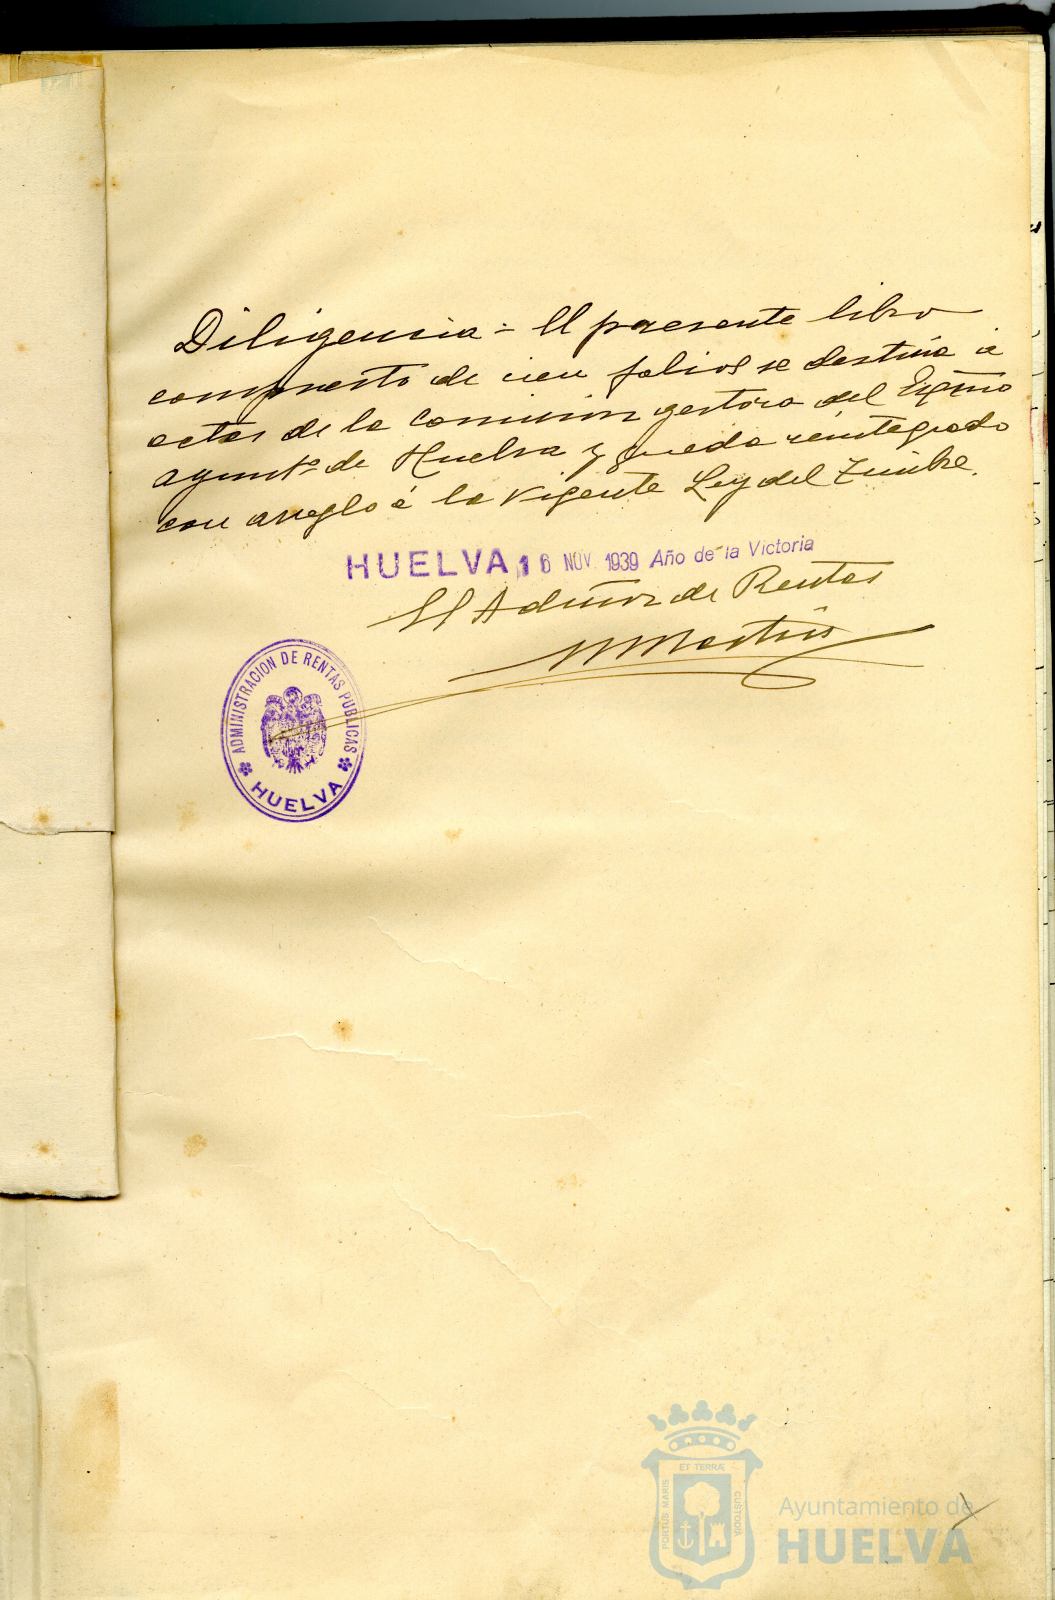 Diligencia = El presente libro
compuesto de cien folios se destina á
actas de la Comisión gestora del Exmo
Ayuntº de Huelva y queda reintegrado
con arreglo á la vigente Ley del Timbre.
HUELVA 16 NOV. 1939 Año de la Victoria
El Admor de Rentas
M Martin
ADMINISTRACION DE RENTAS PUBLICAS
HUELVA
ET TERRÆ
PORTUS MARIS
CUSTODIA
Ayuntamiento de
HUELVA